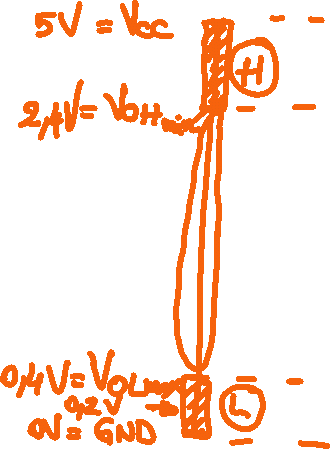 5V = Vcc
H
2,4V = VOHmin
0,4V = VOLmax
0,2V
L
0V = GND